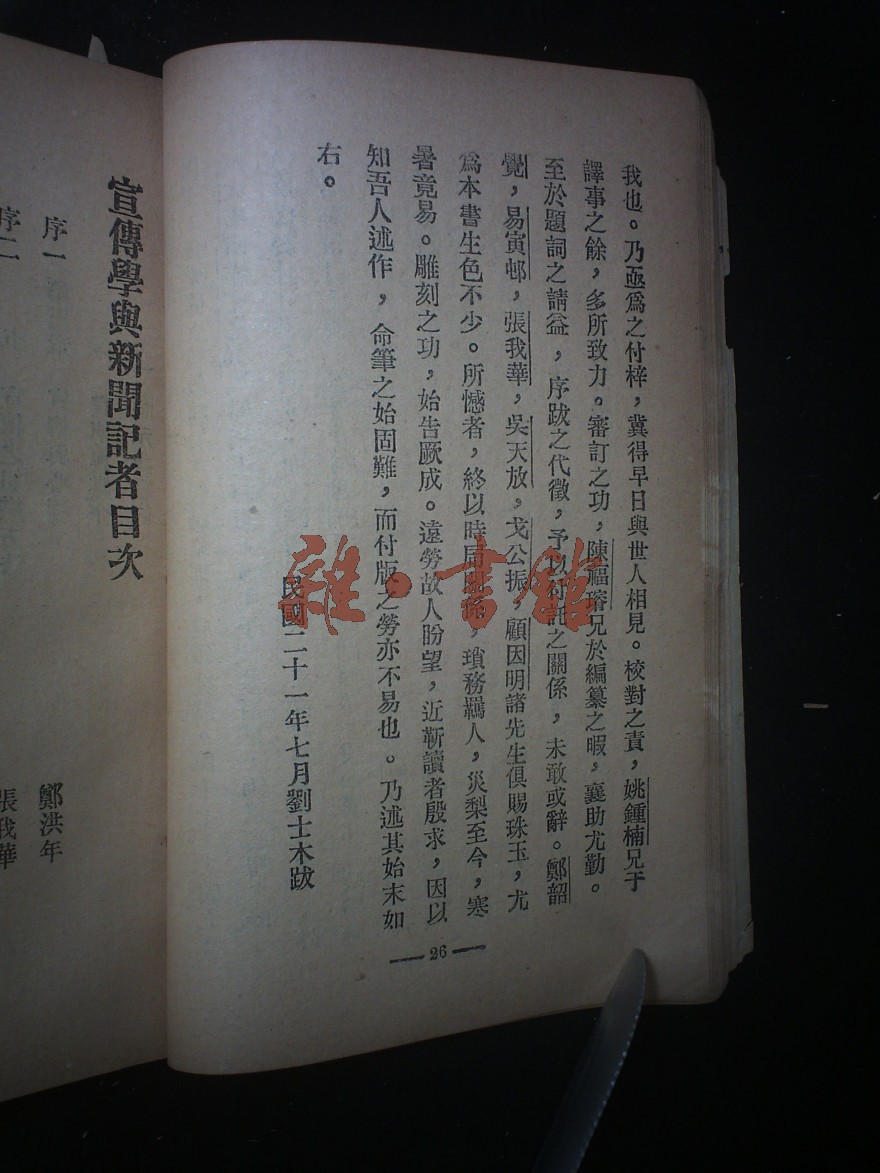 我也。乃亟爲之付梓，冀得早日與世人相見。校對之責，姚鍾楠兄于
譯事之餘，多所致力。審訂之功，陳福璿兄於編纂之暇，襄助尤勤。
至於題詞之請益，序跋之代徵，予以 託之關係，未敢或辭。鄭韶
覺，易寅邨，張我華，吳天放，戈公振，顧因明諸先生俱賜珠玉，尤
爲本書生色不少。所憾者，終以時局 係，瑣務羈人，災梨至今，寒
暑竟易。雕刻之功，始告厥成。遠勞故人盼望，近靳讀者殷求，因以
知吾人述作，命筆之始固難，而付版之勞亦不易也。乃述其始末如
右。
民國二十一年七月劉士木跋
26
宣傳學與新聞記者目次
序一 鄭洪年
序二 張我華
雜·書館